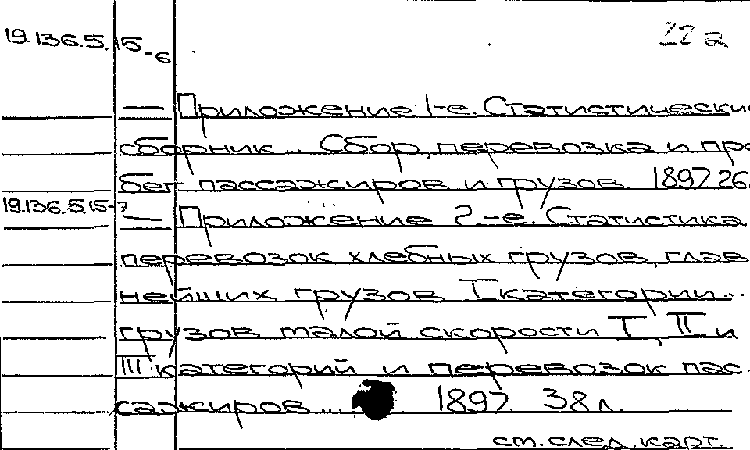 19.136.5.15-6
22 а
— Приложение 1-е. Статистический
сборник... Сбор, перевозка и про
бег пассажиров и грузов. 1897. 26
19.136.5.15-7 — Приложение 2-е. Статистика
перевозок хлебных грузов, глав
нейших грузов I категории...
грузов малой скорости I, II и
III категорий и перевозок пас
сажиров... 1897. 38 л.
см. след. карт.